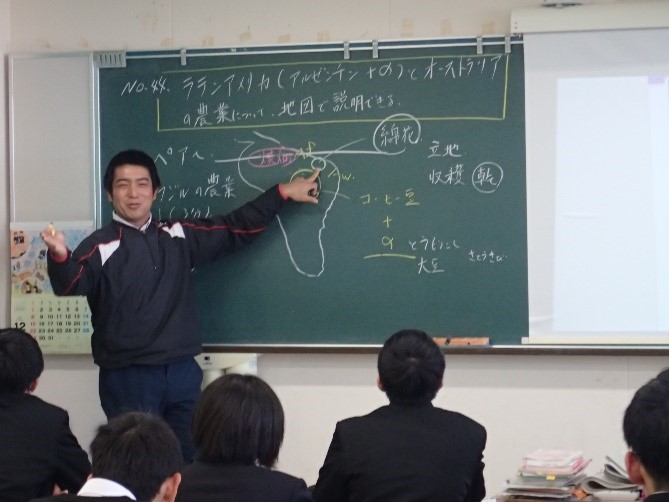 NO.44. ラテンアメリカ(アルゼンチン+α)とオーストラリア
の農業について、地図で説明できる。
ペアへ。
ジルの農業
Af
Aw.
綿花
立地
収穫
乾
コーヒー豆
+
α
とうもろこし
大豆
さとうきび
12